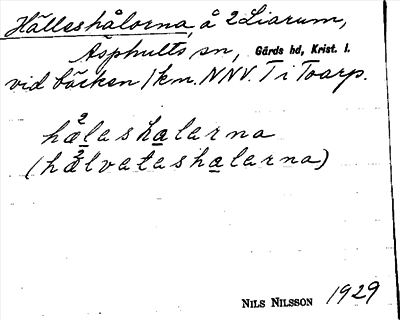 Hälleshålorna, å 2 Liarum,
Äsphults sn, Gärds hd, Krist. l.
vid bäcken 1 km. NNV. T i Toarp.
hælashalarna
(hælvatashalarna)
NILS NILSSON 1929